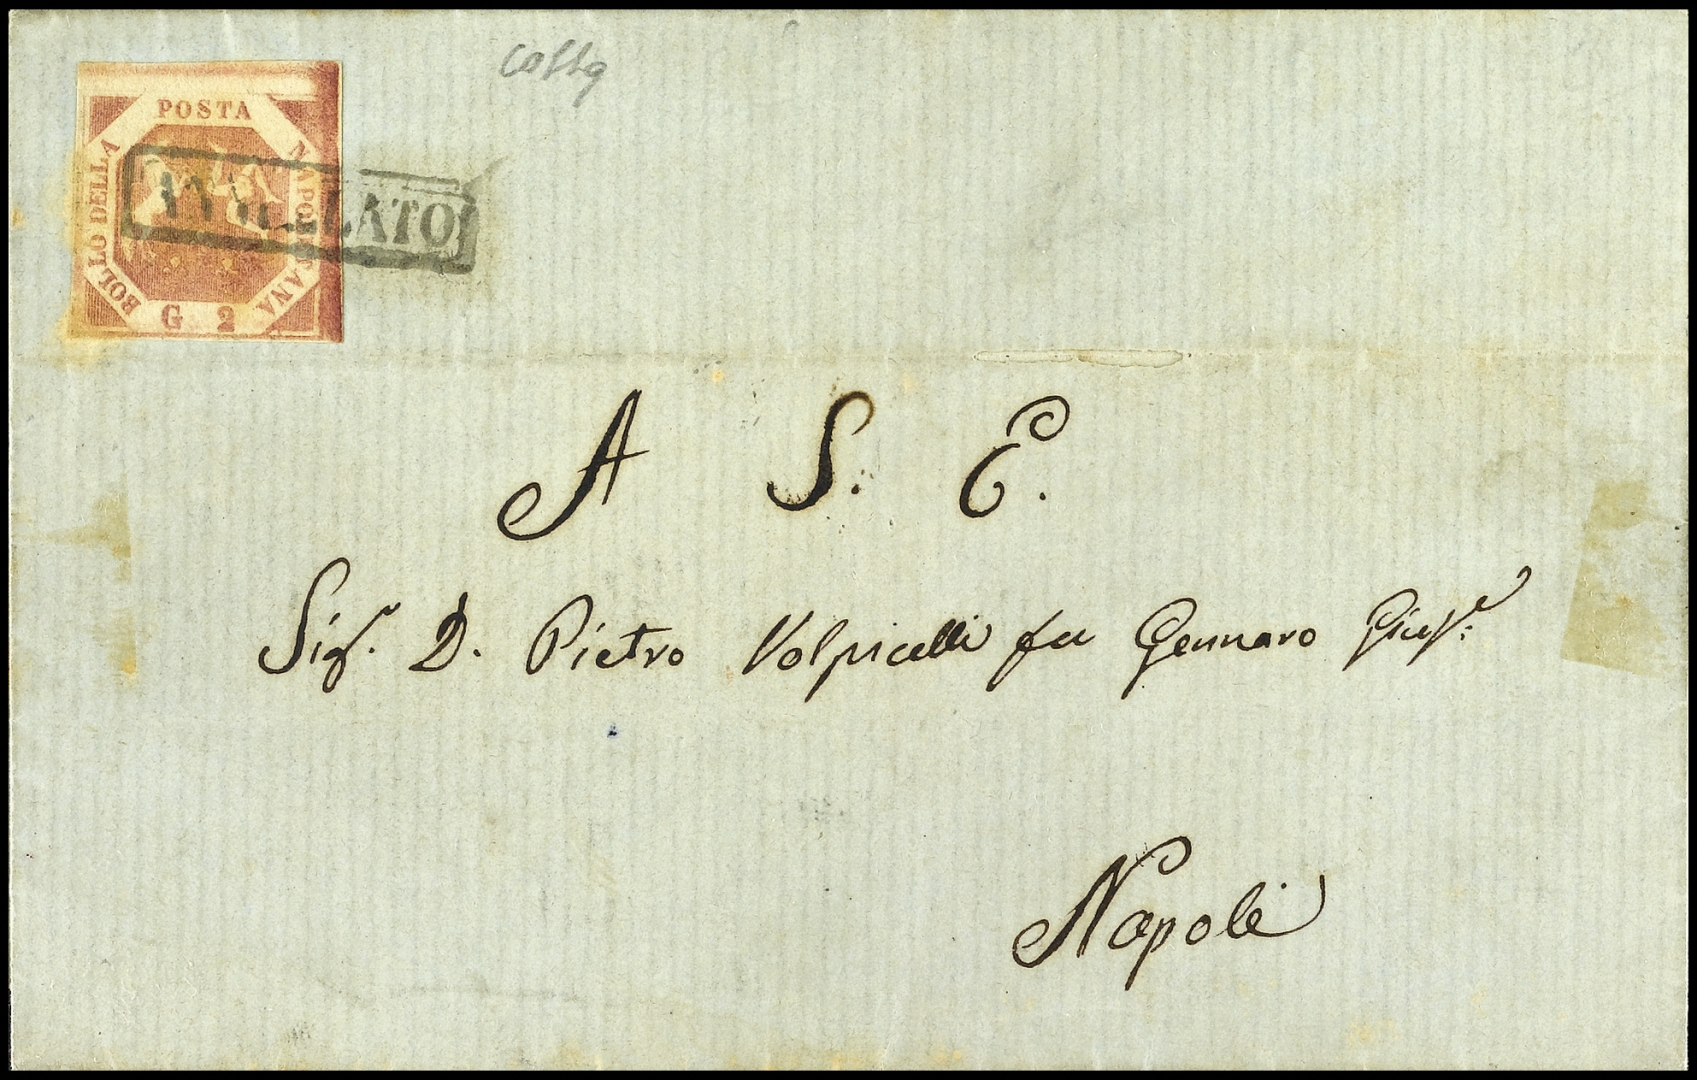 Costa
POSTA
BOLLO DELLA
NAPOLETANA
G 2
ANNULLATO
A S. E.
Sig.r D. Pietro Volpicelli fu Gennaro Gius.e
Napoli